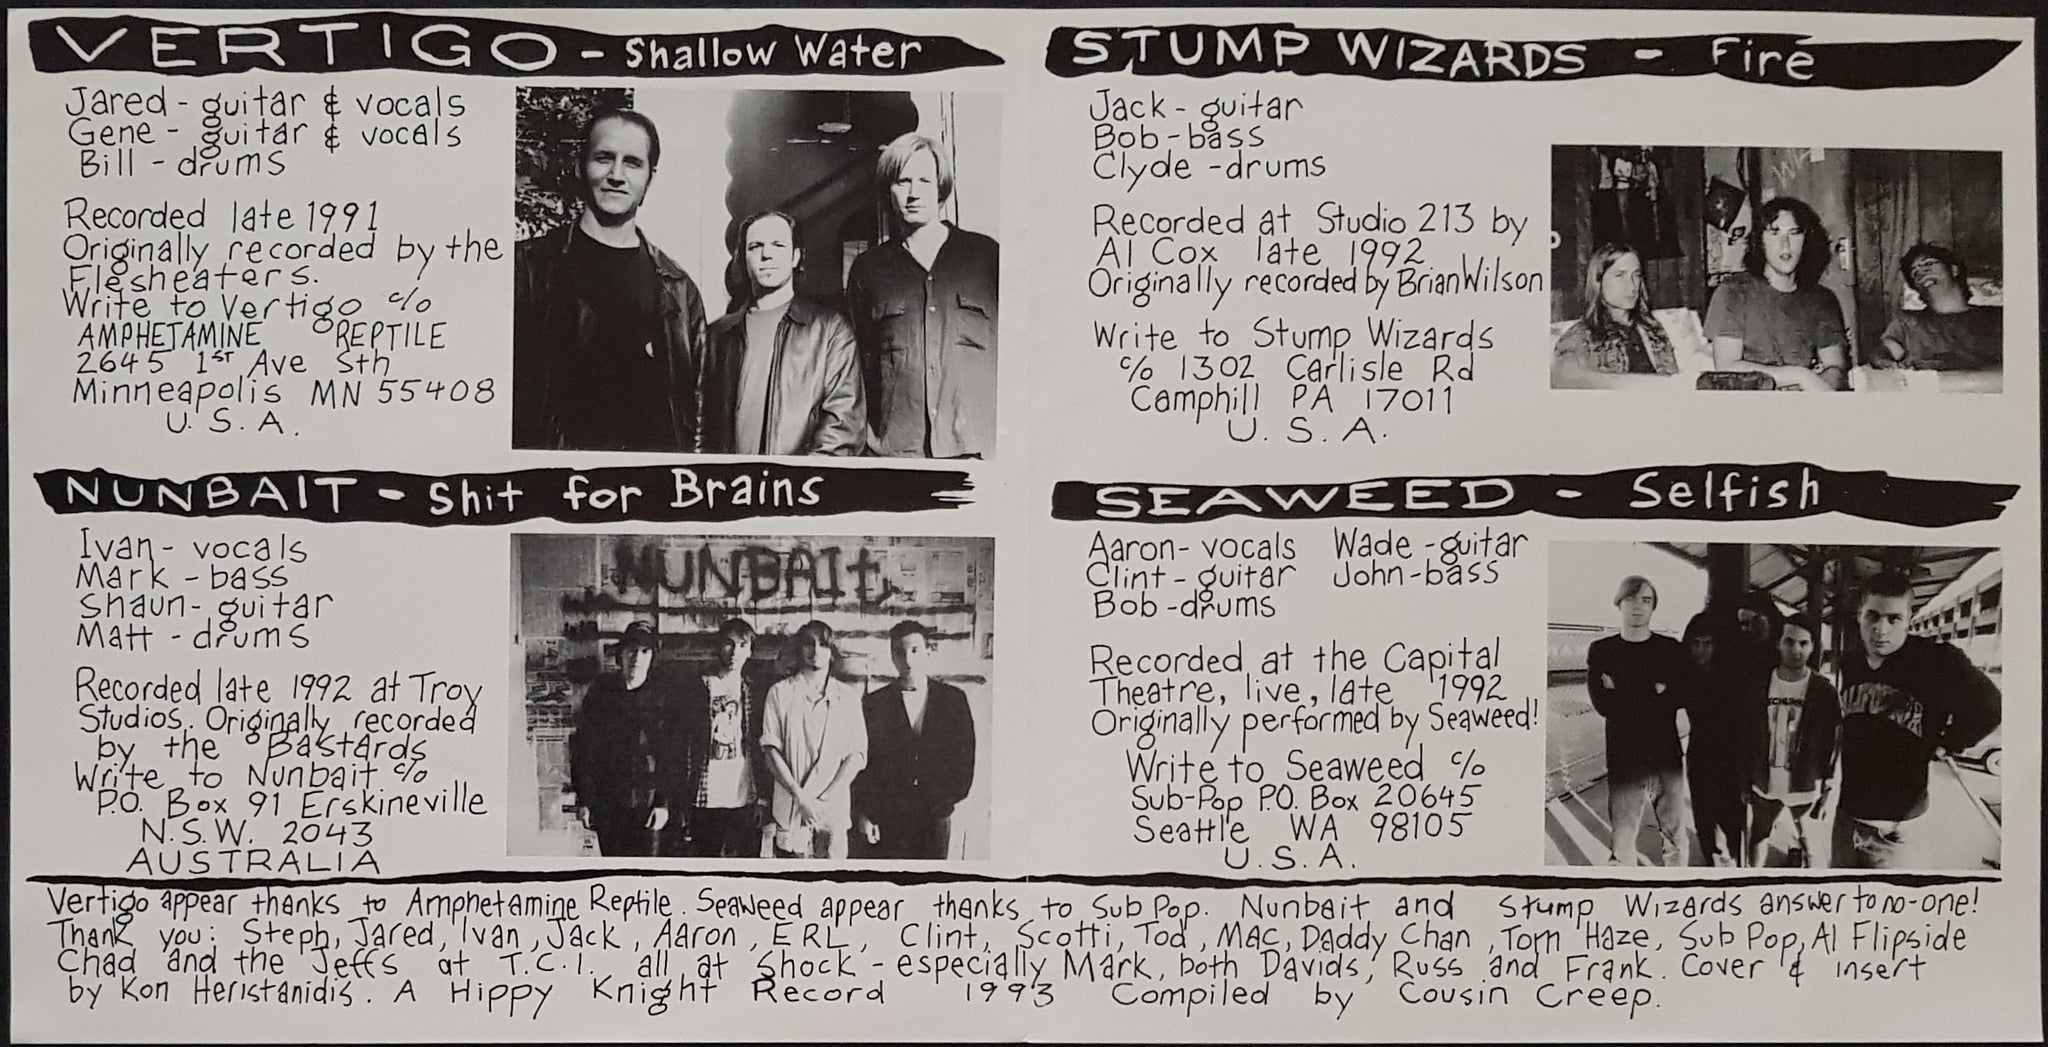 VERTIGO - Shallow Water
Jared - guitar & vocals
Gene - guitar & vocals
Bill - drums
Recorded late 1991
Originally recorded by the
Flesheaters.
Write to Vertigo c/o
AMPHETAMINE REPTILE
2645 1ST Ave Sth
Minneapolis MN 55408
U.S.A.
STUMP WIZARDS - Fire
Jack - guitar
Bob - bass
Clyde - drums
Recorded at Studio 213 by
Al Cox late 1992
Originally recorded by Brian Wilson
Write to Stump Wizards
c/o 1302 Carlisle Rd
Camphill PA 17011
U.S.A.
NUNBAIT - Shit for Brains
Ivan - vocals
Mark - bass
Shaun - guitar
Matt - drums
Recorded late 1992 at Troy
Studios. Originally recorded
by the Bastards
Write to Nunbait c/o
P.O. Box 91 Erskineville
N.S.W. 2043
AUSTRALIA
NUNBAIt
SEAWEED - Selfish
Aaron - vocals Wade - guitar
Clint - guitar John - bass
Bob - drums
Recorded at the Capital
Theatre, live, late 1992
Originally performed by Seaweed!
Write to Seaweed c/o
Sub-Pop P.O. Box 20645
Seattle WA 98105
U.S.A.
Vertigo appear thanks to Amphetamine Reptile. Seaweed appear thanks to Sub Pop. Nunbait and Stump Wizards answer to no-one!
Thank you: Steph, Jared, Ivan, Jack, Aaron, ERL, Clint, Scotti, Tod, Mac, Daddy Chan, Tom Haze, Sub Pop, Al Flipside
Chad and the Jeffs at T.C.I. all at Shock - especially Mark, both Davids, Russ and Frank. Cover & insert
by Kon Heristanidis. A Hippy Knight Record 1993 Compiled by Cousin Creep.